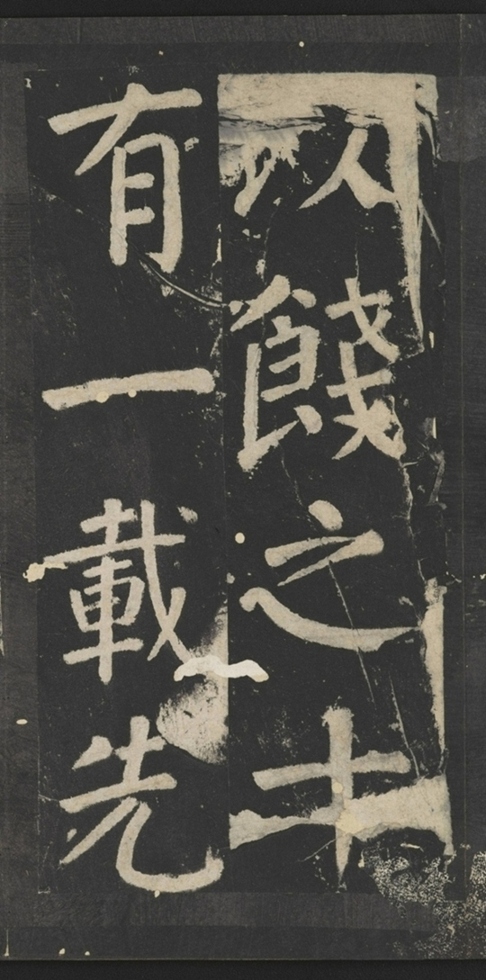 以餞之十
有一載先